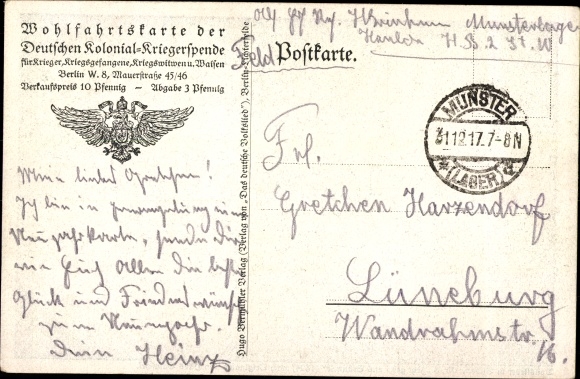 Wohlfahrtskarte der
Deutschen Kolonial=Kriegerspende
für Krieger, Kriegsgefangene, Kriegswitwen u. Waisen
Berlin W. 8, Mauerstraße 45/46
Verkaufspreis 10 Pfennig – Abgabe 3 Pfennig
Munsterlager
Feld Postkarte.
MUNSTER
31.12.17.7-8N
(LAGER)
Frl.
Gretchen Harzendorf
Lüneburg
Wandrahmstr.
16.
Mein liebes Gretchen!
Ich bin in
Neujahrskarten, sende Dir
wie Euch Allen die besten
Glück und
zum Neuen Jahr.
Dein Heinz
Hugo Bermühler Verlag (Verlag von „Das deutsche Volkslied"), Berlin-Lichterfelde